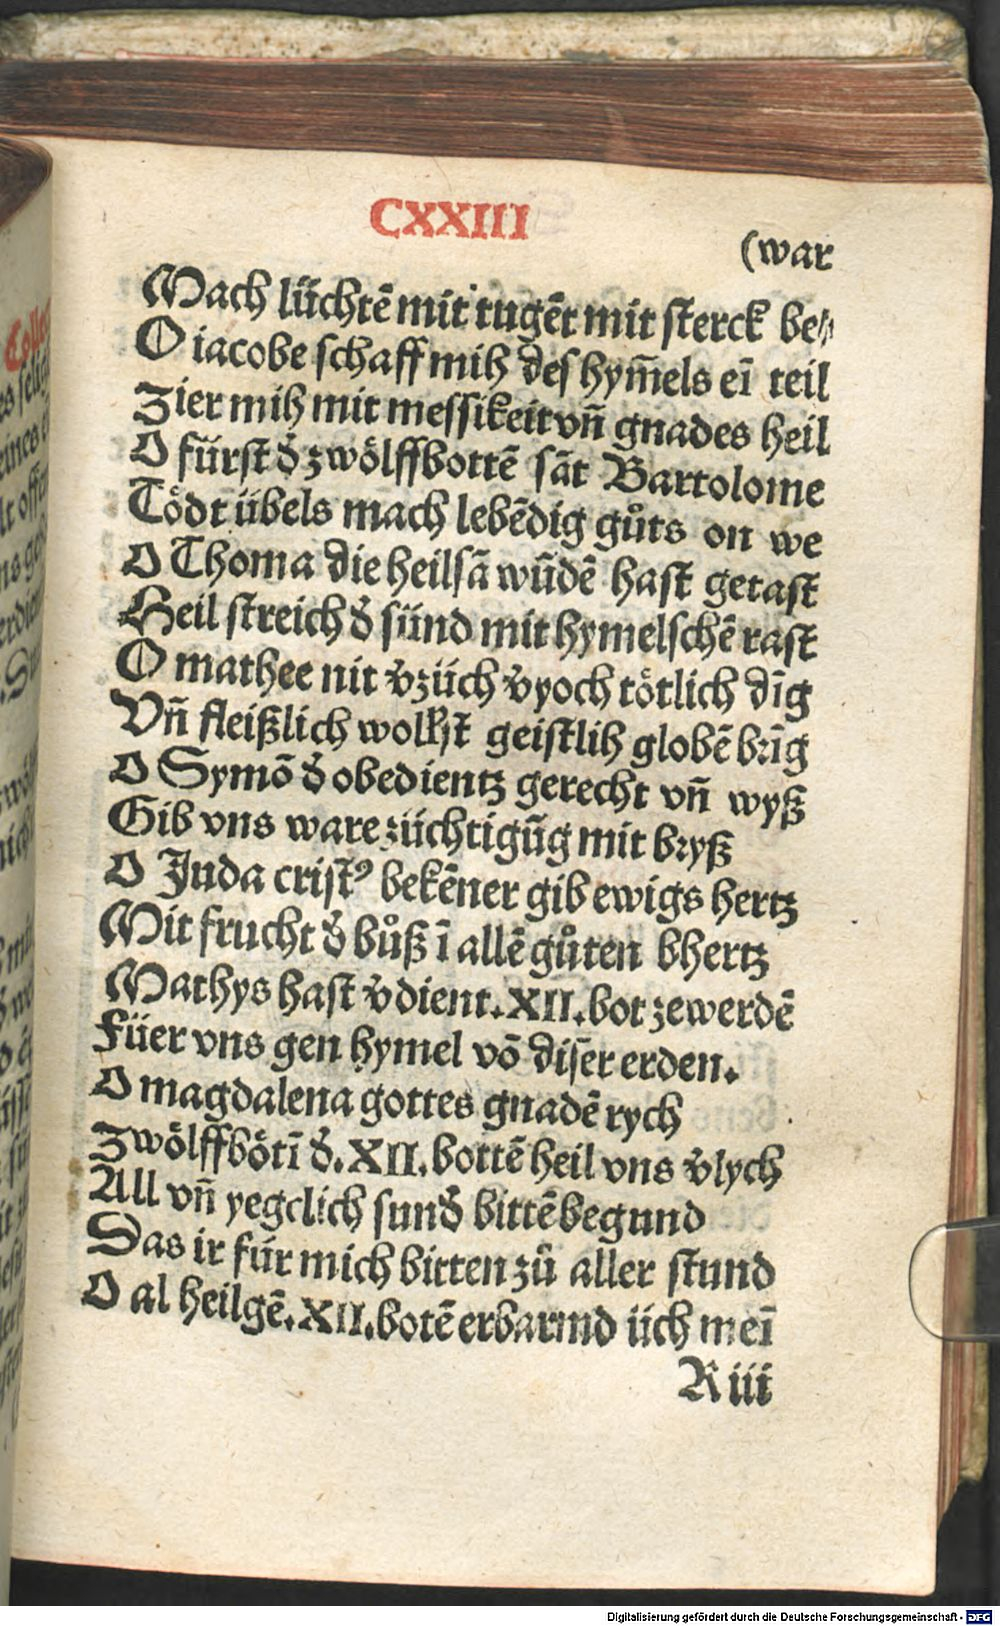 CXXIII
(war
Mach lüchtē mit tugēt mit sterck be⸗
O iacobe schaff mih des hym̄els eī teil
Zier mih mit messikeit vn̄ gnades heil
O fürst d̓ zwölffbottē sāt Bartolome
Tödt übels mach lebēdig gůts on we
O Thoma die heilsā wūdē hast getast
Heil streich d̓ sünd mit hymelschē rast
O mathee nit v̓züch v̓yoch tötlich dīg
Vn̄ fleißlich wollst geistlih globē brīg
O Symō d̓ obedientz gerecht vn̄ wyß
Gib vns ware züchtigūg mit bryß
O Juda cristꝰ bekēner gib ewigs hertz
Mit frucht d̓ bůß ī allē gůten bhertz
Mathys hast v̓dient.XII.bot zewerdē
Füer vns gen hymel vō diser erden.
O magdalena gottes gnadē rych
Zwölffbötī d̓.XII.bottē heil vns v̓lych
All vn̄ yegclich sund̓ bittē begund
Das ir für mich bitten zů aller stund
O al heilgē.XII.botē erbarmd üch meī
R iii
Digitalisierung gefördert durch die Deutsche Forschungsgemeinschaft - DFG